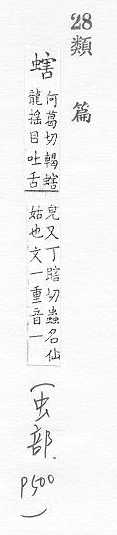 28類篇
螛
何葛切蝎螛
龍搖目吐舌
皃又丁瞎切蟲名仙
姑也文一重音一
(虫部.
P500)